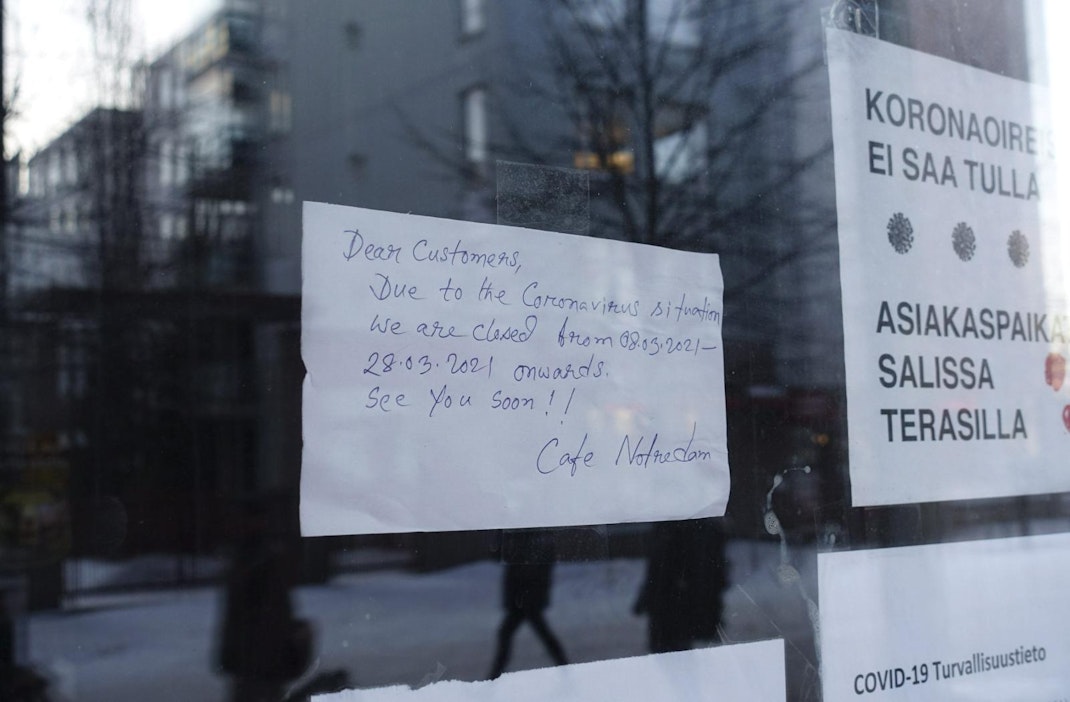 Dear Customers,
Due to the Coronavirus situation
We are closed from 08.03.2021–
28.03.2021 onwards.
See You Soon!!
Cafe Notredam
KORONAOIRE
EI SAA TULLA
ASIAKASPAIK
SALISSA
TERASILLA
COVID-19 Turvallisuustieto